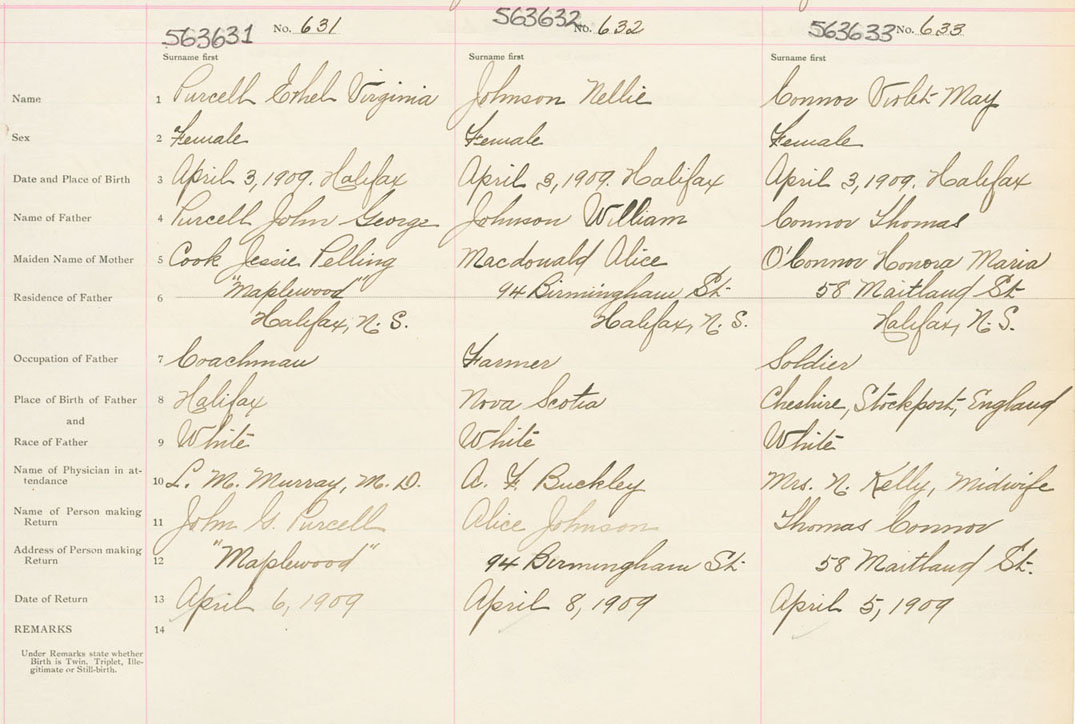 563631 No. 631 563632 No. 632 563633 No. 633
Surname first Surname first Surname first
Name 1 Purcell Ethel Virginia Johnson Nellie Connor Violet May
Sex 2 Female Female Female
Date and Place of Birth 3 April 3, 1909. Halifax April 3, 1909. Halifax April 3, 1909. Halifax
Name of Father 4 Purcell John George Johnson William Connor Thomas
Maiden Name of Mother 5 Cook Jessie Pelling Macdonald Alice O'Connor Honora Maria
Residence of Father 6 "Maplewood" 94 Birmingham St. 58 Maitland St.
Halifax, N. S. Halifax, N. S. Halifax, N. S.
Occupation of Father 7 Coachman Farmer Soldier
Place of Birth of Father 8 Halifax Nova Scotia Cheshire, Stockport, England
and
Race of Father 9 White White White
Name of Physician in at-
tendance 10 L. M. Murray, M. D. A. F. Buckley Mrs. N. Kelly, Midwife
Name of Person making
Return 11 John G. Purcell Alice Johnson Thomas Connor
Address of Person making
Return 12 "Maplewood" 94 Birmingham St. 58 Maitland St.
Date of Return 13 April 6, 1909 April 8, 1909 April 5, 1909
REMARKS 14
Under Remarks state whether
Birth is Twin, Triplet, Ille-
gitimate or Still-birth.